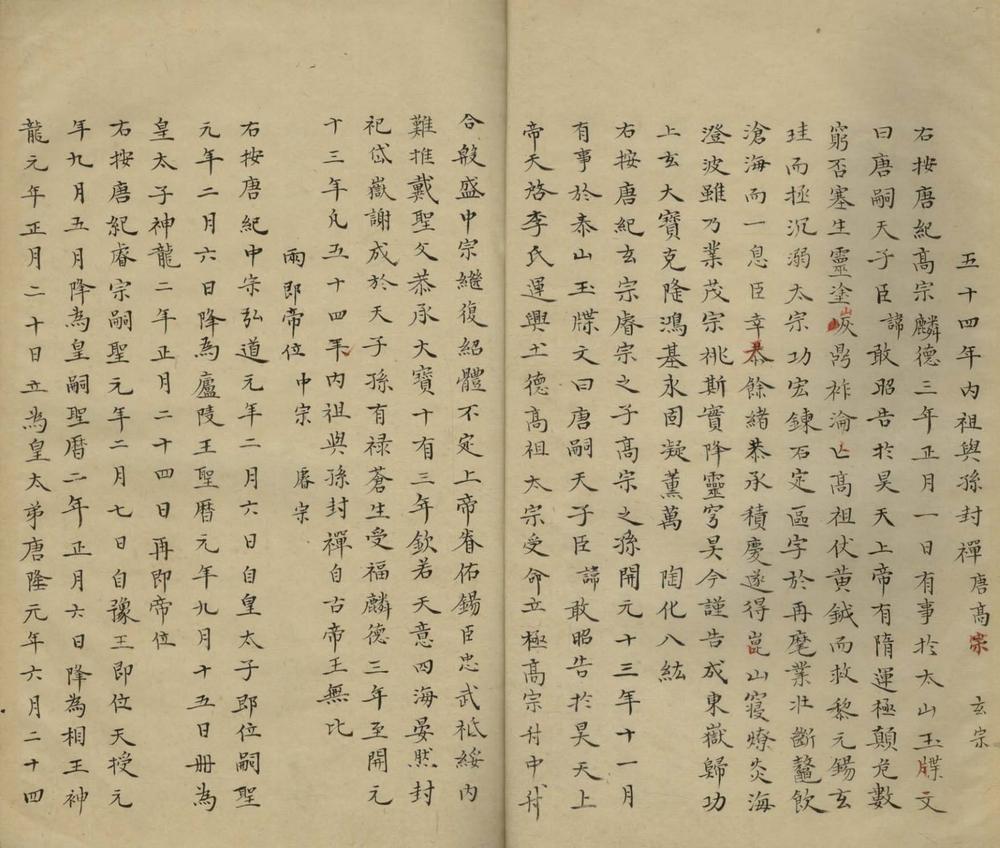 五十四年內祖與孫封禪 唐高宗 玄宗
右按唐紀高宗麟德三年正月一日有事扵太山玉牒文
曰唐嗣天子臣諱敢昭告扵昊天上帝有隋運極顛危數
窮否塞生靈塗炭鼎祚淪亡高祖伏黃鉞而救黎元錫玄
珪而拯沉溺太宗功宏鍊石定區宇於再麾業壯斷鼇飲
滄海而一息臣幸恭餘緒恭承積慶遂得崑山寢燎炎海
澄波雖乃業茂宗祧斯實降靈穹昊今謹告成東嶽歸功
上玄大寶克隆鴻基永固凝薰萬 陶化八紘
右按唐紀玄宗睿宗之子高宗之孫開元十三年十一月
有事於泰山玉牒文曰唐嗣天子臣諱敢昭告扵昊天上
帝天啓李氏運興土德高祖太宗受命立極高宗升中升
合殷盛中宗繼復紹體不定上帝眷佑錫臣忠武祗綏內
難推戴聖父恭承大寶十有三年欽若天意四海晏然封
祀岱嶽謝成於天子孫有祿蒼生受福麟德三年至開元
十三年凡五十四年內祖與孫封禪自古帝王無比
兩即帝位 中宗 睿宗
右按唐紀中宗弘道元年二月六日自皇太子即位嗣聖
元年二月六日降為廬陵王聖曆元年九月十五日冊為
皇太子神龍二年正月二十四日再即帝位
右按唐紀睿宗嗣聖元年二月七日自豫王即位天授元
年九月五月降為皇嗣聖曆二年正月六日降為相王神
龍元年正月二十日立為皇太弟唐隆元年六月二十四